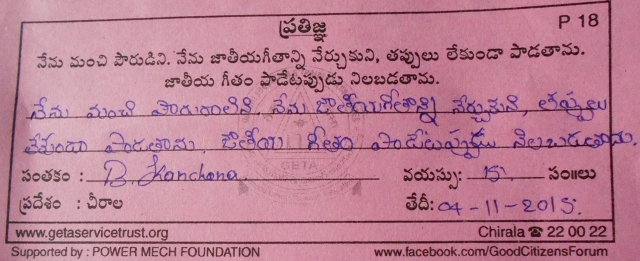 ప్రతిజ్ఞ P 18
నేను మంచి పౌరుడిని. నేను జాతీయగీతాన్ని నేర్చుకుని, తప్పులు లేకుండా పాడతాను.
జాతీయ గీతం పాడేటప్పుడు నిలబడతాను.
నేను మంచి పౌరురాలిని. నేను జాతీయగీతాన్ని నేర్చుకుని, తప్పులు
లేకుండా పాడతాను. జాతీయ గీతం పాడేటప్పుడు నిలబడతాను.
సంతకం : B. Kanchana వయస్సు: 15 సం॥లు
ప్రదేశం : చీరాల తేదీ: 04-11-2015.
www.getaservicetrust.org Chirala ☎ 22 00 22
Supported by : POWER MECH FOUNDATION www.facebook.com/GoodCitizensForum
GETA